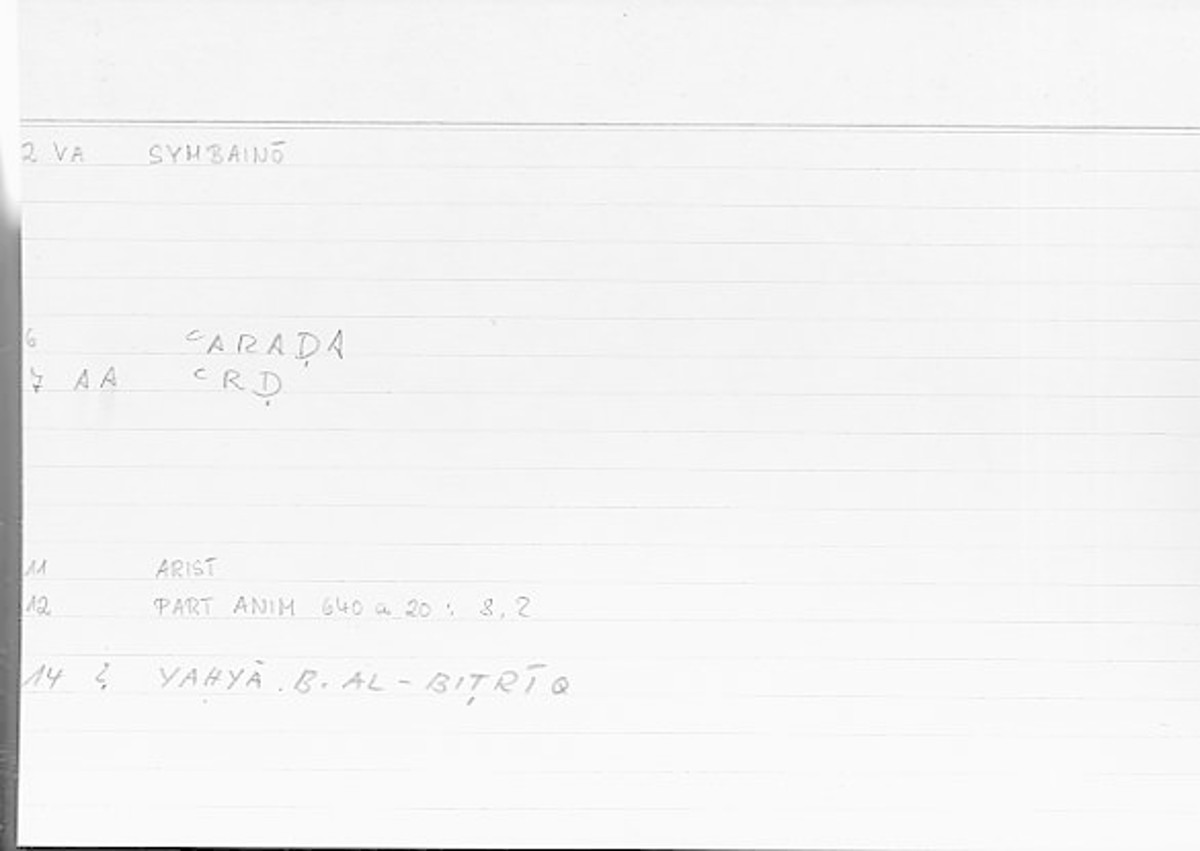 2 VA SYMBAINŌ
6 ʿARAḌA
7 AA ʿRḌ
11 ARIST
12 PART ANIM 640 a 20 : 8, 2
14 ? YAḤYĀ . B. AL-BIṬRĪQ